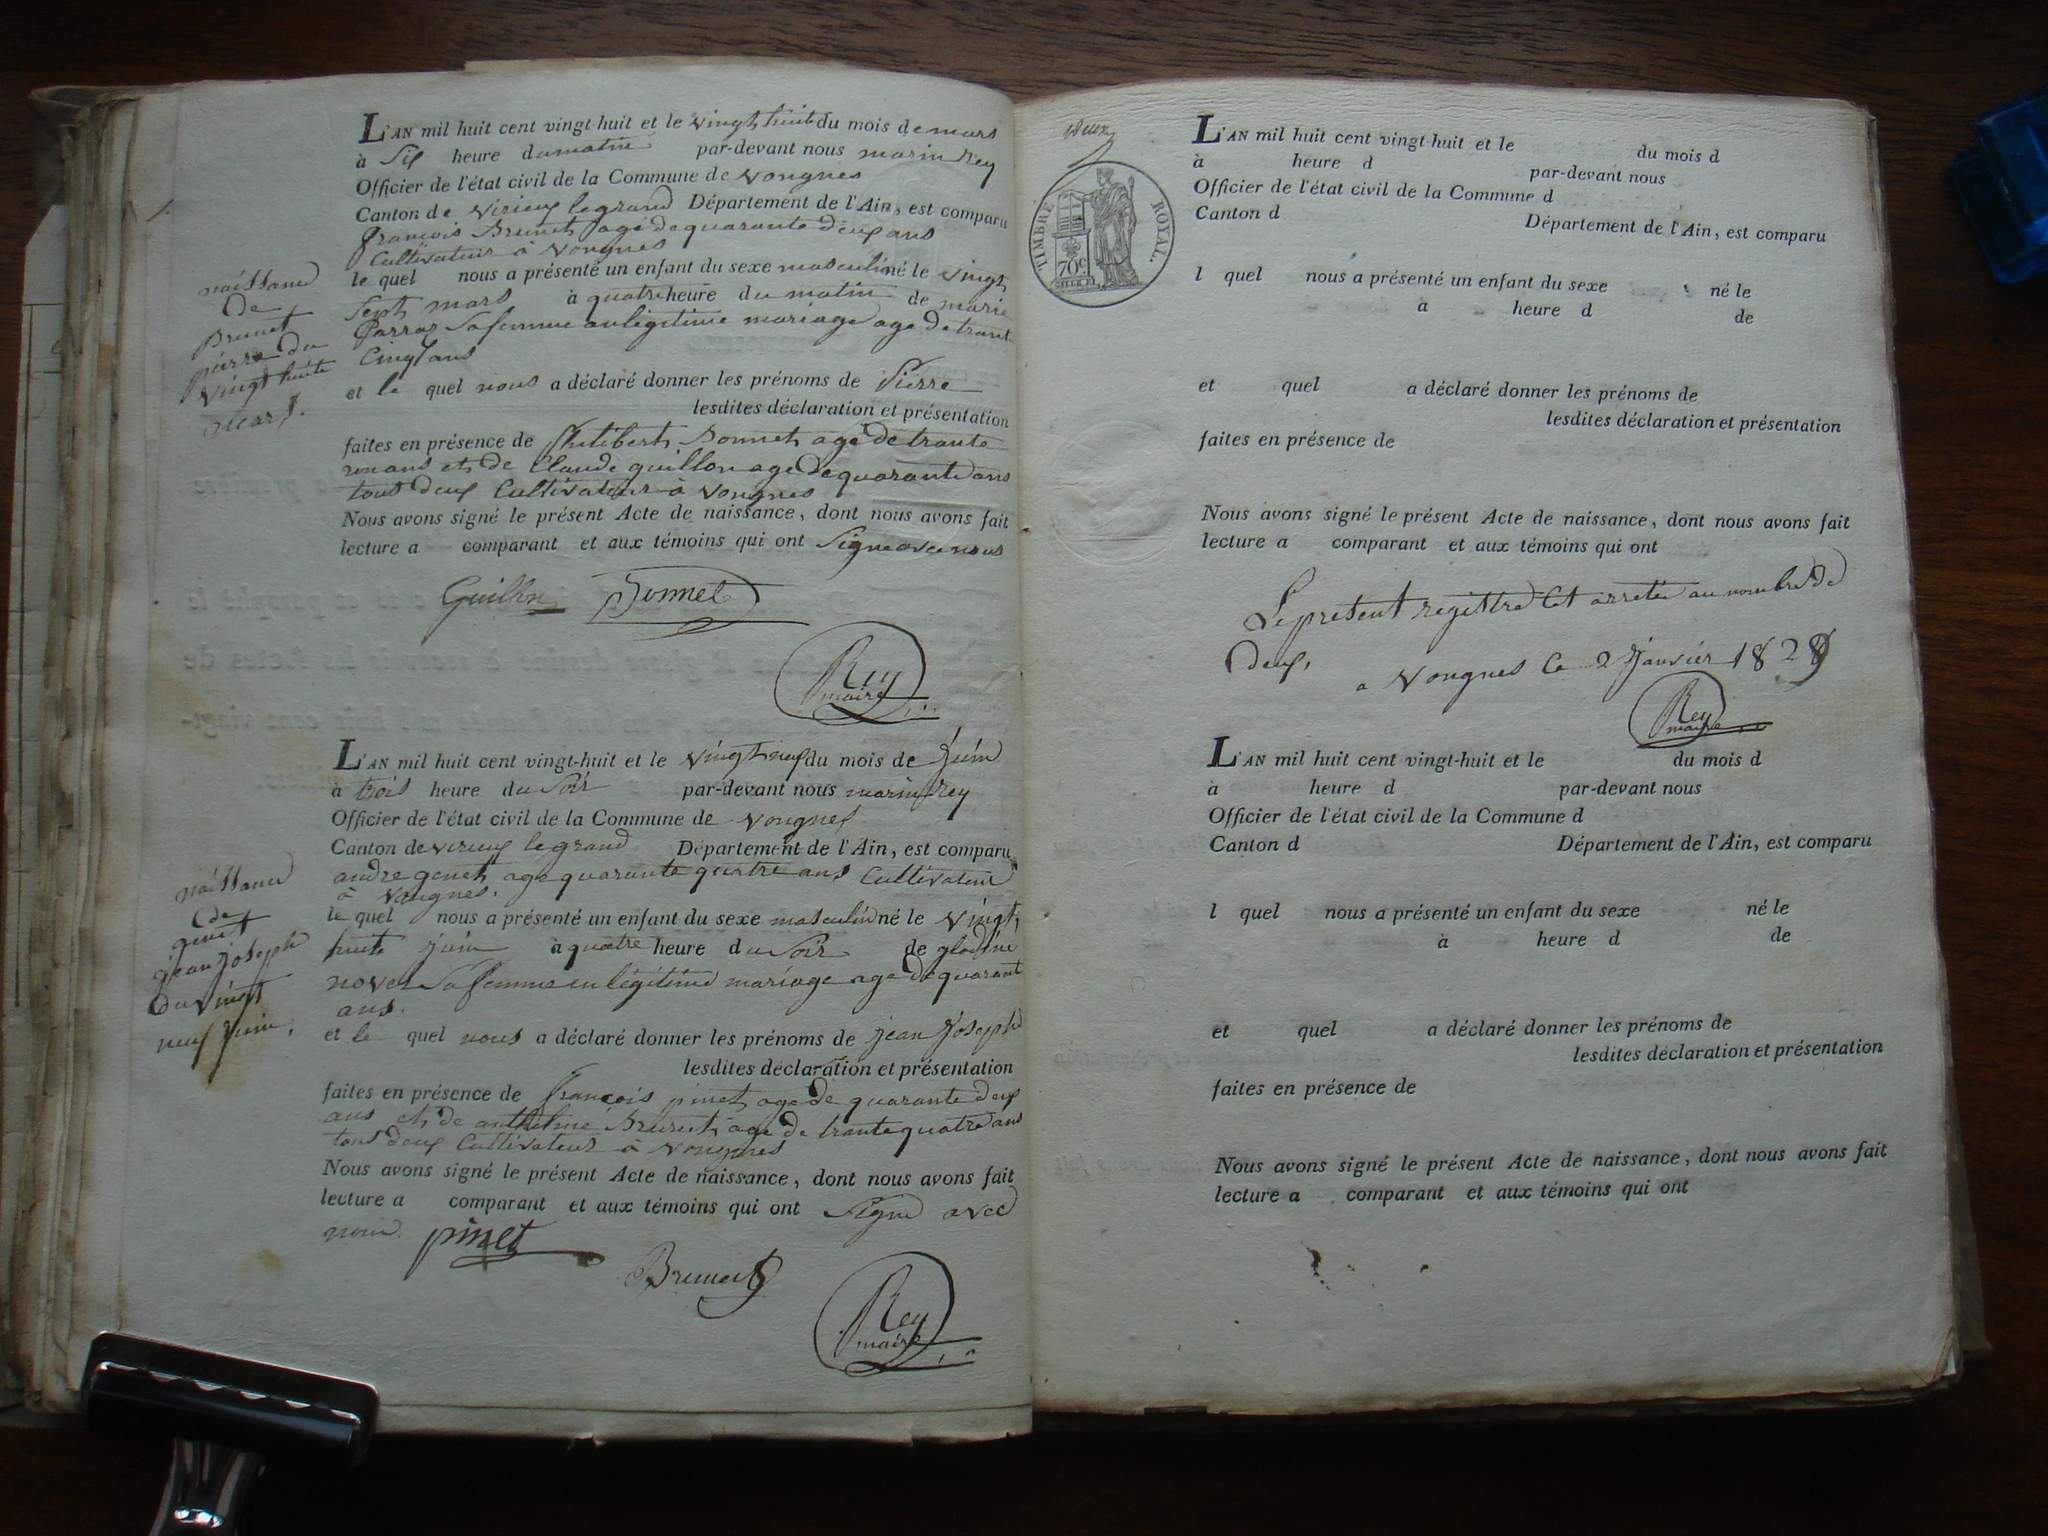 L'AN mil huit cent vingt-huit et le vingt huit du mois de mars
à Six heure du matin par-devant nous marin Rey
Officier de l'état civil de la Commune de vongnes
Canton de virieux le grand Département de l'Ain, est comparu
françois Brunet agé de quarante deux ans
Cultivateur à vongnes
le quel nous a présenté un enfant du sexe masculin né le vingt
Sept mars à quatre heure du matin de marie
sa femme en légitime mariage age de trant
Cinq ans
et le quel nous a déclaré donner les prénoms de Pierre
lesdites déclaration et présentation
faites en présence de philibert Bonnet age de trante
ans et de Claude guillon age de quarante ans
tous deux Cultivateur à vongnes
Nous avons signé le présent Acte de naissance, dont nous avons fait
lecture a comparant et aux témoins qui ont Signe avec nous
Guillon Bonnet
Rey
maire
naissance
de
Brunet
pierre du
vingt huite
mars.
L'AN mil huit cent vingt-huit et le vingt neuf du mois de juin
à trois heure du Soir par-devant nous marin Rey
Officier de l'état civil de la Commune de vongnes
Canton de virieux le grand Département de l'Ain, est comparu
andre genet age quarante quatre ans Cultivateur
à vongnes.
le quel nous a présenté un enfant du sexe masculin né le vingt
huite juin à quatre heure du Soir de glodine
sa femme en légitime mariage age de quarant
ans.
et le quel nous a déclaré donner les prénoms de jean Joseph
lesdites déclaration et présentation
faites en présence de françois pinet age de quarante deux
ans et de anthelme Brunet age de trante quatre ans
tous deux Cultivateur à vongnes
Nous avons signé le présent Acte de naissance, dont nous avons fait
lecture a comparant et aux témoins qui ont signe avec
nous. pinet
Brunet
Rey
maire
naissance
de
genet
jean Joseph
du vingt
neuf juin.
deux
TIMBRE ROYAL.
70c
L'AN mil huit cent vingt-huit et le du mois d
à heure d par-devant nous
Officier de l'état civil de la Commune d
Canton d Département de l'Ain, est comparu
l quel nous a présenté un enfant du sexe né le
à heure d de
et quel a déclaré donner les prénoms de
lesdites déclaration et présentation
faites en présence de
Nous avons signé le présent Acte de naissance, dont nous avons fait
lecture a comparant et aux témoins qui ont
Le présent registre Est arretée au nombre de
deux,
a vongnes le 2 Janvier 1829
Rey
maire
L'AN mil huit cent vingt-huit et le du mois d
à heure d par-devant nous
Officier de l'état civil de la Commune d
Canton d Département de l'Ain, est comparu
l quel nous a présenté un enfant du sexe né le
à heure d de
et quel a déclaré donner les prénoms de
lesdites déclaration et présentation
faites en présence de
Nous avons signé le présent Acte de naissance, dont nous avons fait
lecture a comparant et aux témoins qui ont